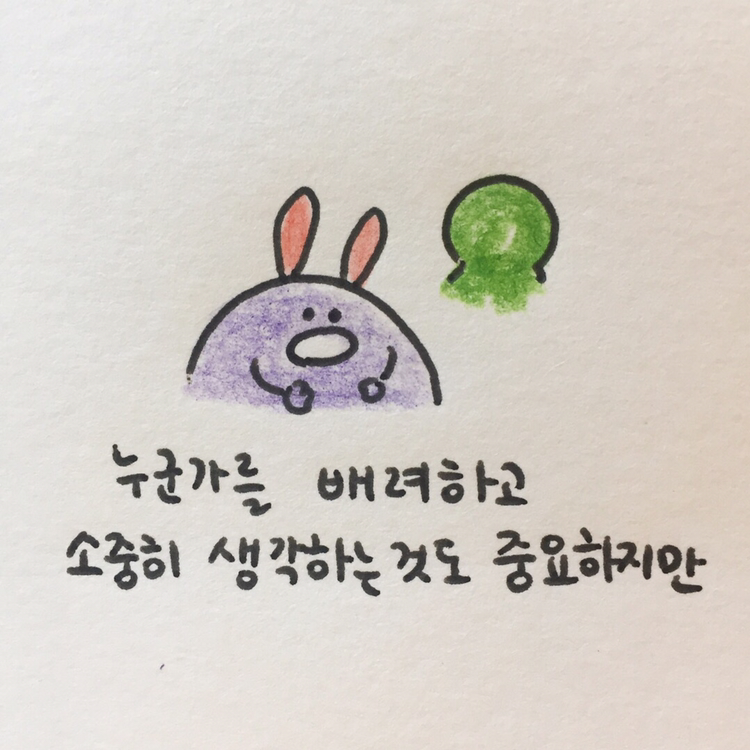 누군가를 배려하고
소중히 생각하는것도 중요하지만